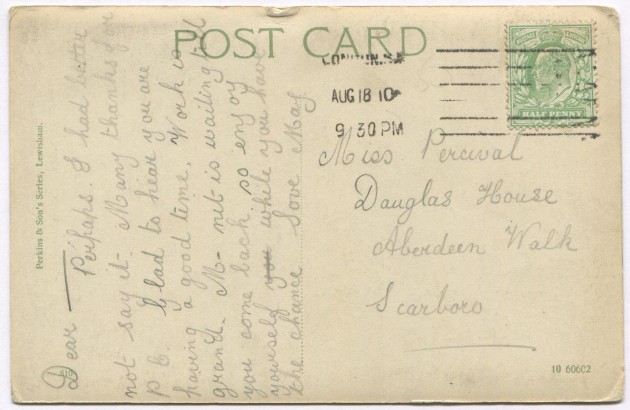 POST CARD
LONDON. S.E
AUG 18 10
9 30 PM
HALF PENNY
Miss Percival
Douglas House
Aberdeen Walk
Scarboro
10 60602
Perkins & Son's Series, Lewisham.
Dear —
Perhaps I had better
not say it. Many thanks for
P C. Glad to hear you are
having a good time. Work is
grand. M- nit is waiting till
you come back, so enjoy
yourself you while you have
the chance Love May